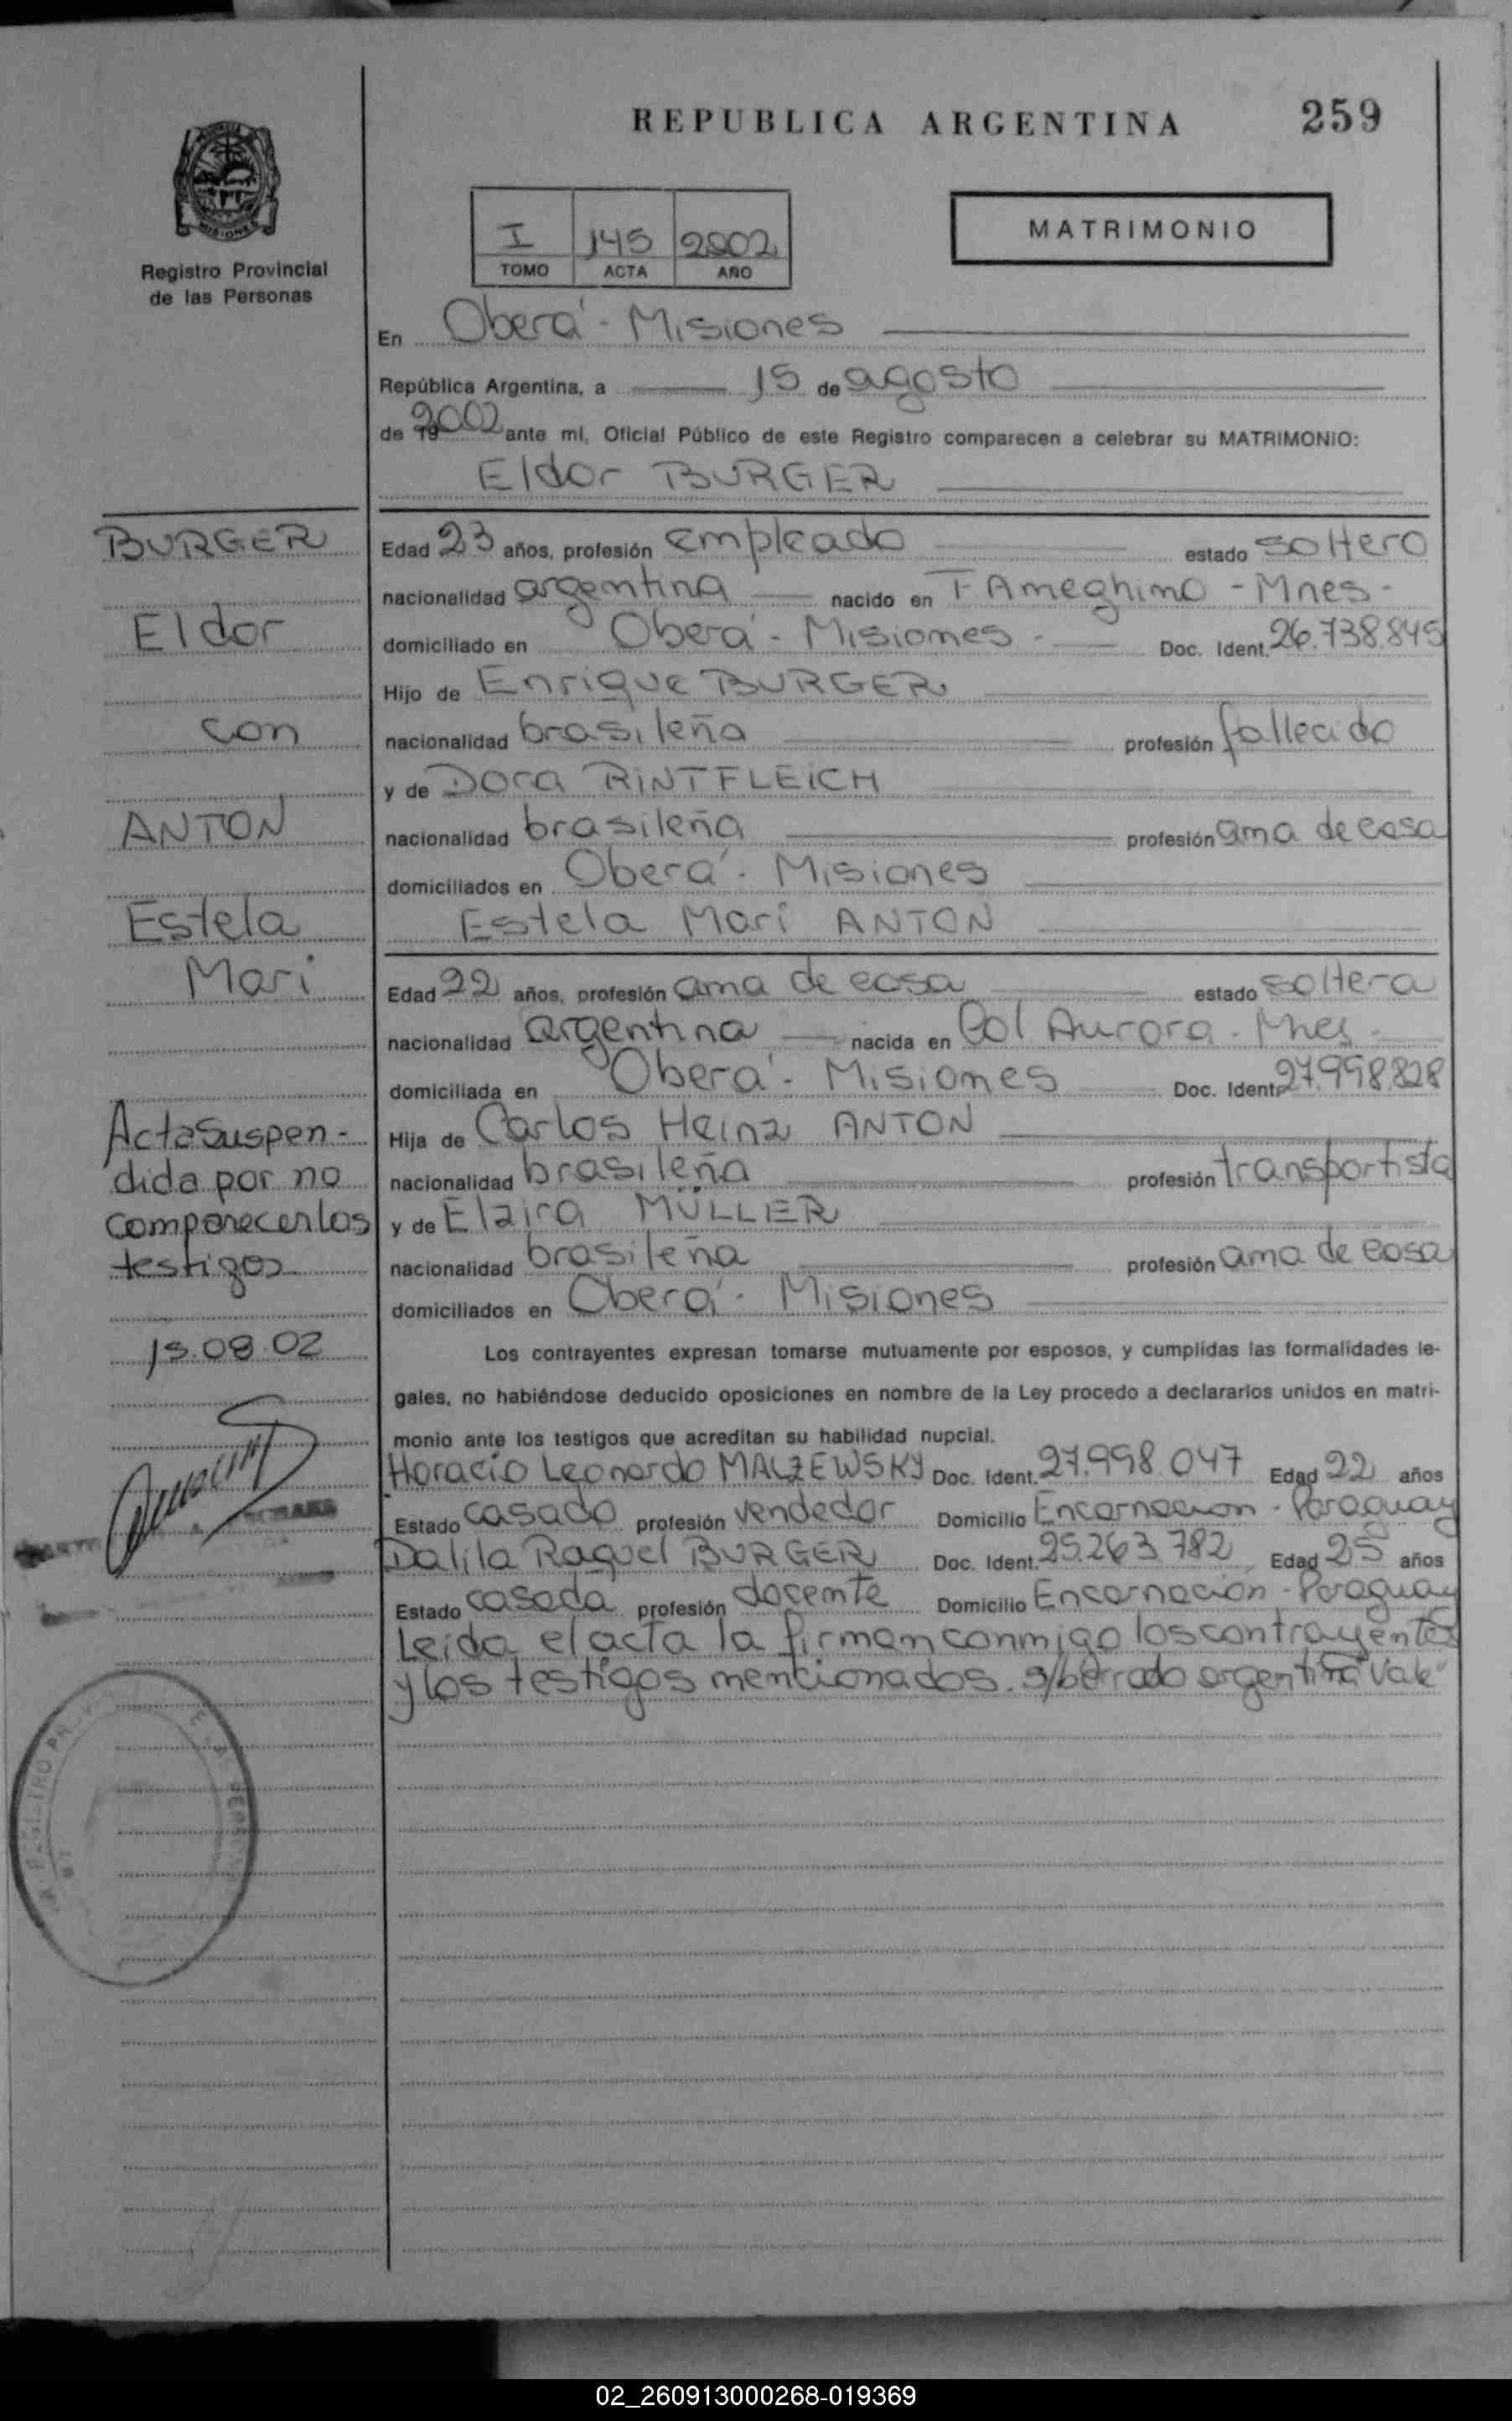 REPUBLICA ARGENTINA
259
MISIONES
Registro Provincial
de las Personas
I 145 2002
TOMO ACTA AÑO
MATRIMONIO
En Oberá - Misiones
República Argentina, a 15 de agosto
de 19 2002 ante mí, Oficial Público de este Registro comparecen a celebrar su MATRIMONIO:
Eldor BURGER
BURGER
Eldor
con
ANTON
Estela
Mari
Acta Suspen-
dida por no
comparecer los
testigos
15.08.02
Edad 23 años, profesión empleado estado soltero
nacionalidad argentina nacido en F Ameghino - Mnes -
domiciliado en Oberá - Misiones - Doc. Ident. 26.738.845
Hijo de Enrique BURGER
nacionalidad brasileña profesión fallecido
y de Dora RINTFLEICH
nacionalidad brasileña profesión ama de casa
domiciliados en Oberá - Misiones
Estela Mari ANTON
Edad 22 años, profesión ama de casa estado soltera
nacionalidad argentina nacida en Col Aurora - Mnes -
domiciliada en Oberá - Misiones Doc. Ident. 27.998.828
Hija de Carlos Heinz ANTON
nacionalidad brasileña profesión transportista
y de Elzira MÜLLER
nacionalidad brasileña profesión ama de casa
domiciliados en Oberá - Misiones
Los contrayentes expresan tomarse mutuamente por esposos, y cumplidas las formalidades le-
gales, no habiéndose deducido oposiciones en nombre de la Ley procedo a declararlos unidos en matri-
monio ante los testigos que acreditan su habilidad nupcial.
Horacio Leonardo MALZEWSKY Doc. Ident. 27.998.047 Edad 22 años
Estado casado profesión vendedor Domicilio Encarnacion - Paraguay
Dalila Raquel BURGER Doc. Ident. 25.263.782 Edad 25 años
Estado casada profesión docente Domicilio Encarnación - Paraguay
Leida el acta la firman conmigo los contrayentes
y los testigos mencionados. s/borrado argentina Vale
02_260913000268-019369